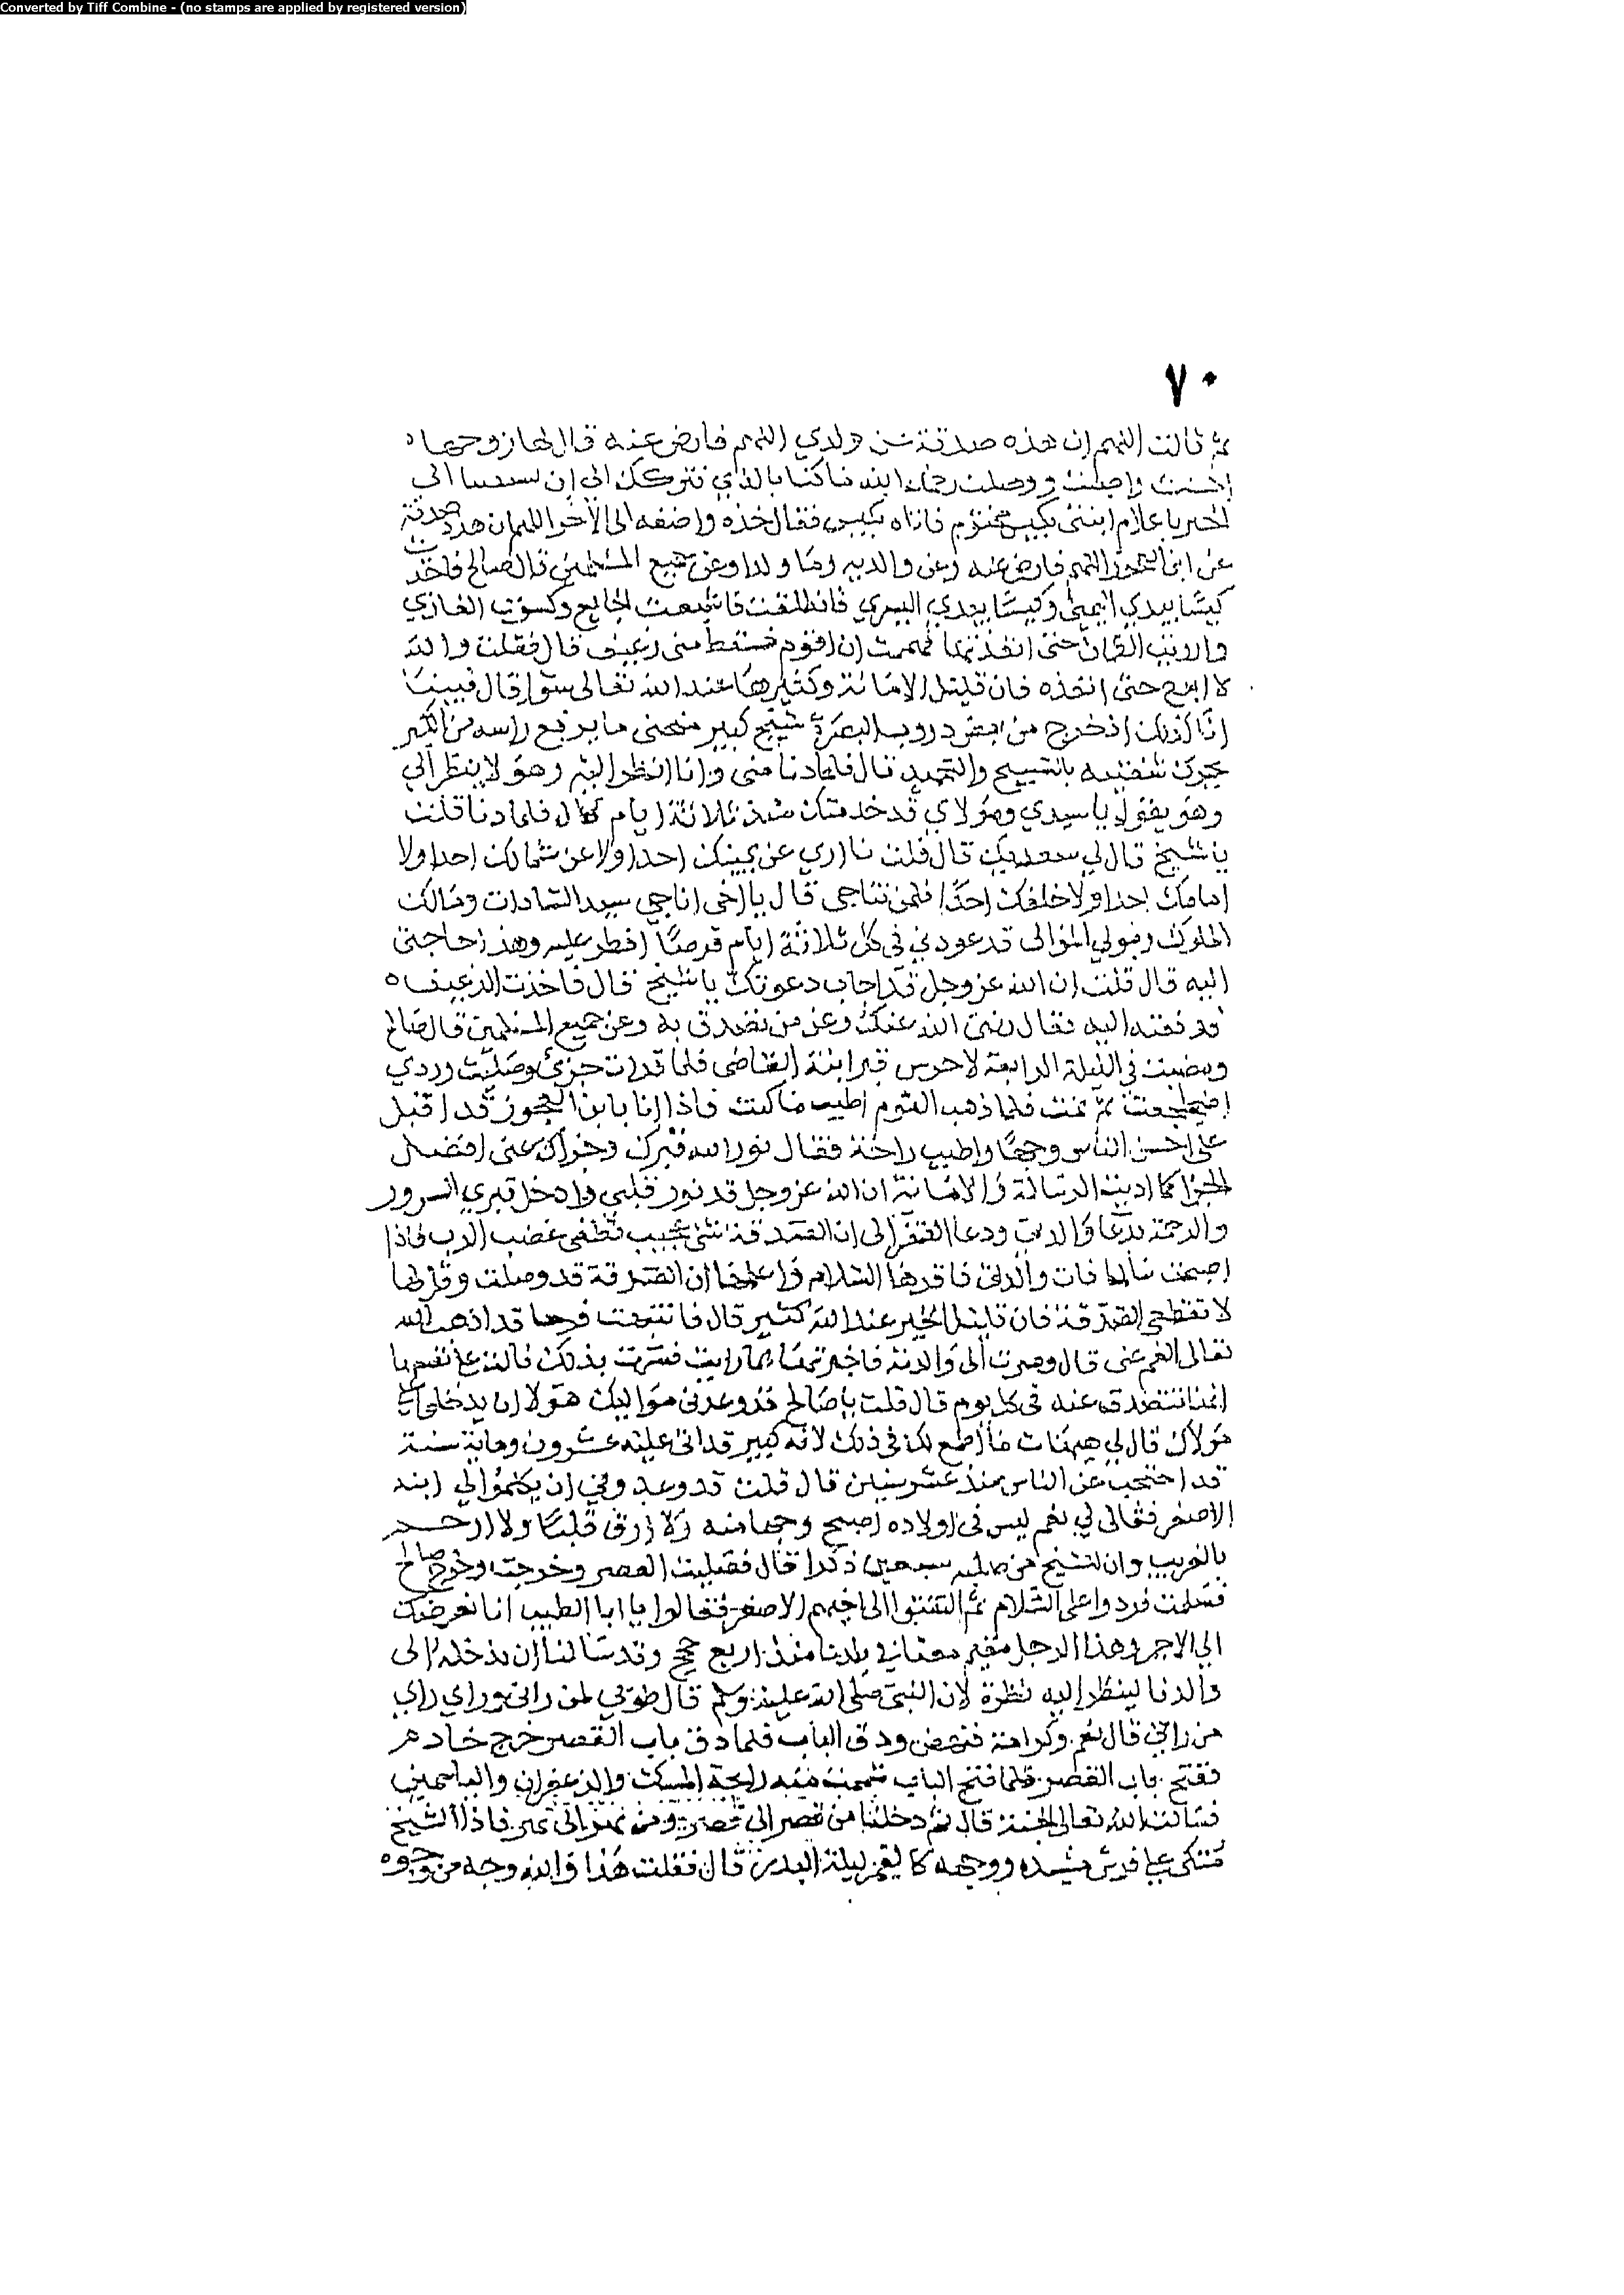 Converted by Tiff Combine - (no stamps are applied by registered version)
٧٠
ثم قالت اللهم ان هذه صدقة عن ولدي اللهم فارض عنه قال لها زوجها
احسنت واجملت ووصلت رحمك الله ما كنا بالذي نتركك الى ان
الخير يا غلام ايتني بكيس مختوم فاتاه بكيس فقال خذه واضفه الى الاخر اللهم ان هذه صدقة
عن ابن العجوز اللهم فارض عنه وعن والديه وما ولدا وعن جميع المسلمين قال صالح فاخذت
كيسا بيدي اليمنى وكيسا بيدي اليسرى فانطلقت فاشبعت الجايع وكسوت العاري
حتى انفذتهما فهممت ان اقوم فسقط مني رغيف قال فقلت والله
لا ابرح حتى انفذه فان قليل الامانة وكثيرها عند الله تعالى سوا قال فبينما
انا كذلك اذ خرج من بعض دروب البصرة شيخ كبير منحني ما يرفع راسه من الكبر
يحرك شفتيه بالتسبيح والتحميد قال فلما دنا مني وانا انظر اليه وهو لا ينظر الي
وهو يقول يا سيدي ومولاي قد خدمتك منذ ثلاثة ايام قال فلما دنا قلت
يا شيخ قال لي سعديك قال قلت ما اري عن يمينك احدا ولا عن شمالك احدا ولا
امامك احدا ولا خلفك احدا فلمن تناجي قال يا اخي اناجي سيد السادات ومالك
الملوك ومولي الموالي قد عودني في كل ثلاثة ايام قرصا افطر عليه وهذه حاجتي
اليه قال قلت ان الله عز وجل قد اجاب دعوتك يا شيخ قال فاخذت الرغيف
فدفعته اليه فقال رضي الله عنك وعن من تصدق به وعن جميع المسلمين قال صالح
ومضيت في الليلة الرابعة لاحرس قبر ابنة القاضي فلما قرات جزئي وصليت وردي
اضطجعت ثم نمت فلما ذهب النوم اطيب ما كنت فاذا انا بابن العجوز قد اقبل
على احسن الناس وجها واطيب رائحة فقال نور الله قبرك وجزاك عني افضل
الجزا كما اديت الرسالة والامانة ان الله عز وجل قد نور قلبي وادخل قبري السرور
والرحمة بدعا والدتي ودعا الفقرا لي ان الصدقة شئ عجيب تطفي غضب الرب فاذا
اصبحت سالما فات والدتي فاقرها السلام واعلمها ان الصدقة قد وصلت وقل لها
لا تقطعي الصدقة فان قليل الخير عند الله كثير قال فانتبهت فرحا قد اذهب الله
تعالى الغم عني قال وصرت الى والدته فاخبرتها بما رايت فسرت بذلك قالت نعم يا
اخي انا نتصدق عنه في كل يوم قال قلت يا صالح قد وعدني مواليك هولا ان يدخلوني على
مولاك قال لي هيهات ما اطمع لك في ذلك لانه كبير قد اتى عليه عشرون وماية سنة
قد احتجب عن الناس منذ عشر سنين قال قلت قد وعدوني ان يكلموا لي ابنه
الاصغر فقال لي نعم ليس في اولاده اصبح وجها منه ولا ارق قلبا ولا ارحم
بالغريب وان للشيخ من صلبه سبعين ذكرا قال فصليت العصر وخرجت وخرج صالح
فسلمت فردوا علي السلام ثم التفتوا الى اخيهم الاصغر فقالوا يا ابا الطيب انا نعرضك
الي الاجر وهذا الرجل مقيم معنا في بلدنا منذ اربع حجج وقد سالنا ان ندخله الى
والدنا لينظر اليه نظرة لان النبي صلى الله عليه وسلم قال طوبي لمن راني وراي راي
من راني قال نعم وكرامة فنهض ودق الباب فلما دق باب القصر خرج خادم
ففتح باب القصر فلما فتح الباب شممت منه رايحة المسك والزعفران والياسمين
فسالت الله تعالى الجنة قال ثم دخلنا من قصر الى قصر ومن ممر الى ممر فاذا الشيخ
متكي على فرش مشيده ووجهه كالقمر ليلة البدر قال فقلت هذا والله وجه من وجوه